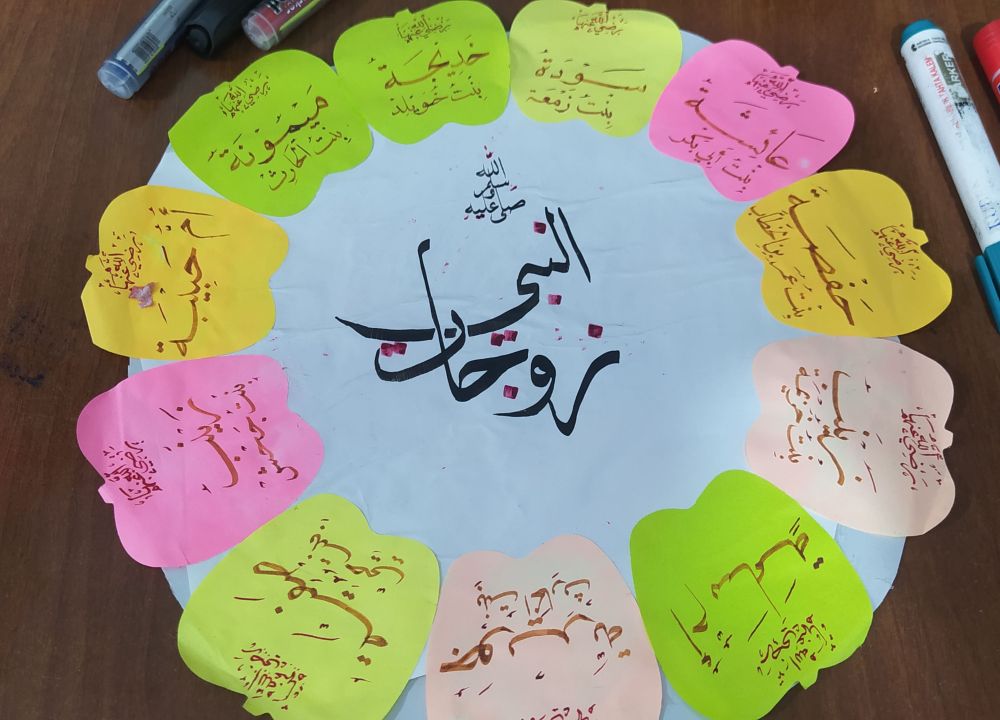 زوجات النبي
صلى الله عليه وسلم
خَدِيجَة
بِنْت خُوَيْلِد
رضي الله عنها
سَوْدَة
بِنْت زَمْعَة
رضي الله عنها
عَائِشَة
بِنْت أبي بكر
رضي الله عنها
حَفْصَة
بنت عمر بن الخطاب
رضي الله عنها
زينب
بنت خزيمة
رضي الله عنها
أم سلمة
رضي الله عنها
صفية
رضي الله عنها
زينب
بنت جحش
رضي الله عنها
أم حَبِيبَة
رضي الله عنها
مَيْمُونَة
بنت الحارث
رضي الله عنها